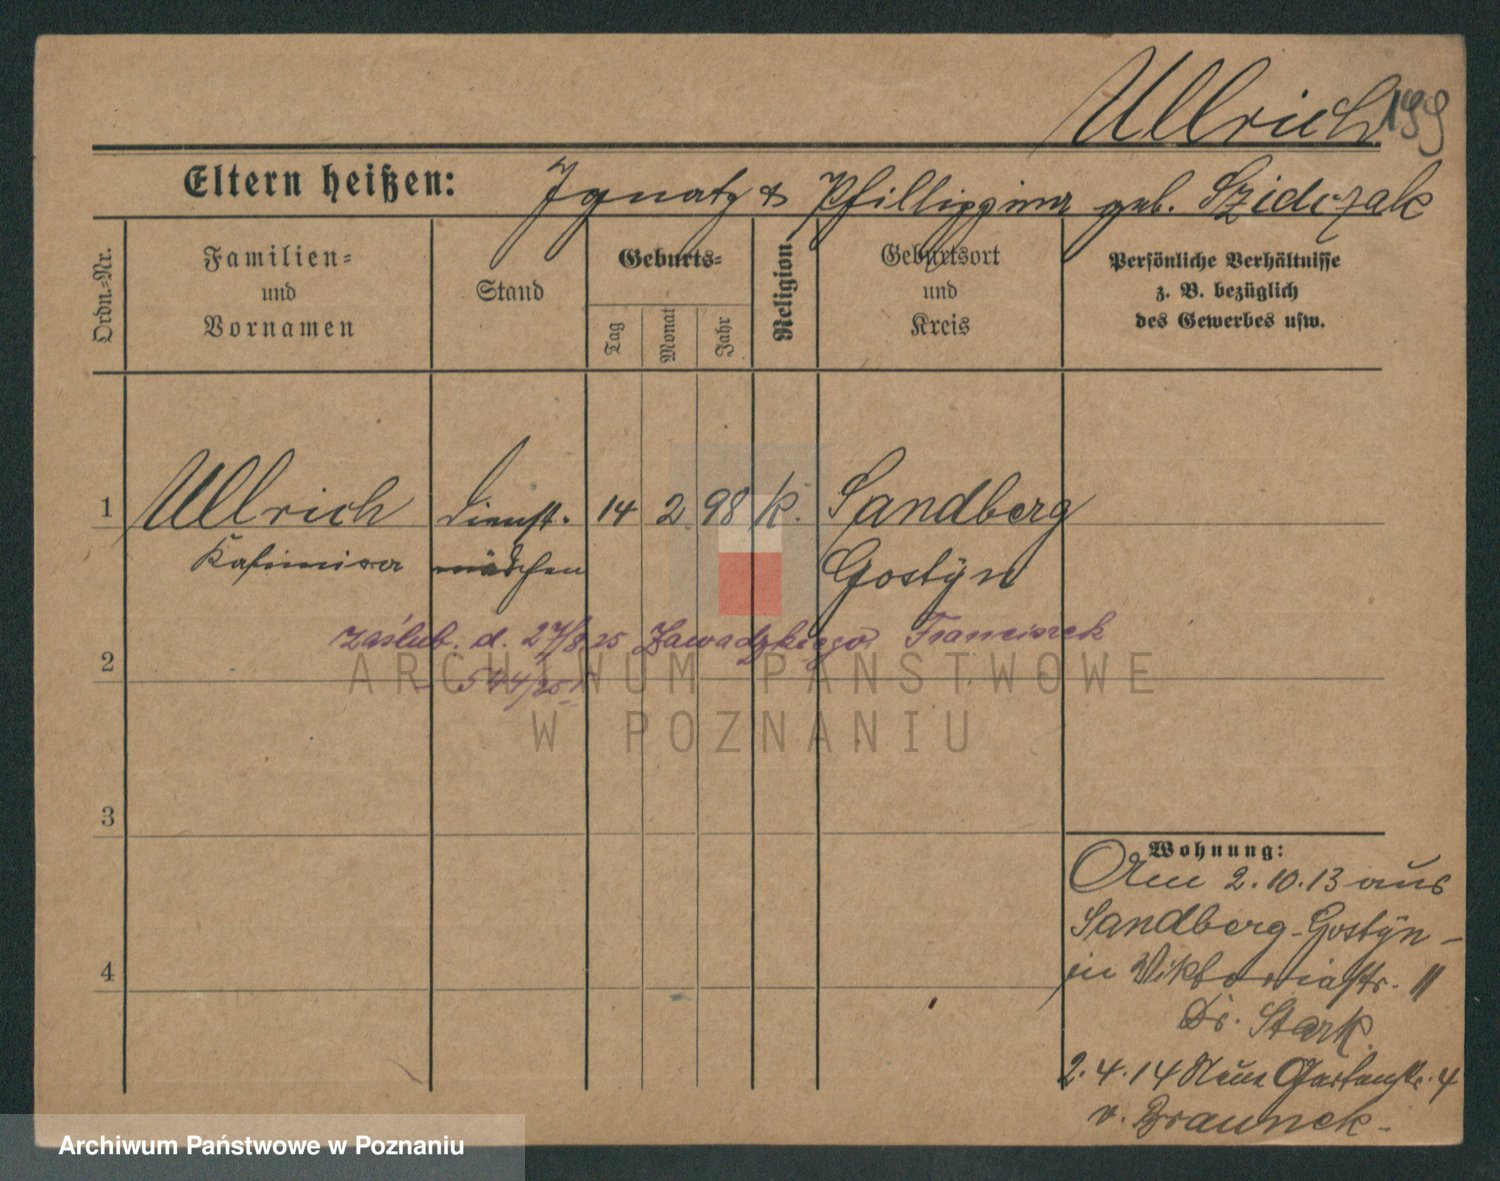 Ullrich 199
Eltern heißen: Ignatz & Phillippina geb. Szidczak
Ordn.-Nr.
Familien-
und
Vornamen
Stand
Geburts-
Tag
Monat
Jahr
Religion
Geburtsort
und
Kreis
Persönliche Verhältnisse
z. B. bezüglich
des Gewerbes usw.
1 Ullrich Dienst- 14 2 98 k. Sandberg
Kasimira mädchen Gostÿn
zaślub. d. 27/8 25 Zawadzkiego Franciszek
2
544/25
ARCHIWUM PAŃSTWOWE
W POZNANIU
3
4
Wohnung:
Am 2.10.13 aus
Sandberg-Gostÿn -
in Viktoriastr. 11
Dr. Stark.
2.4.14 Neue Gartenstr. 4
v. Braunek.
Archiwum Państwowe w Poznaniu